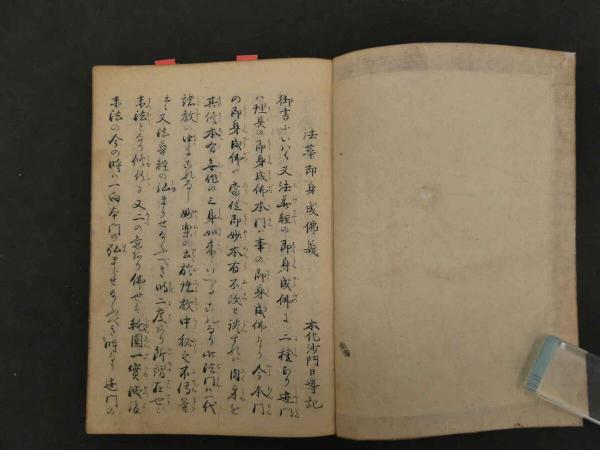 法華即身成佛義
本化沙門日導記
御書にいはく又法華経の即身成佛に二種あり迹門
ハ理具の即身成佛本門ハ事の即身成佛なり今本門
の即身成佛ハ當位即妙本有不改と談すれハ肉身を
其儘本有無作の三身如来といへるこれなり此法門ハ一代
諸教の中にこれなし妙楽の云於諸教中秘之不傳等
云云又法華経の弘まらせ給ふへき時二度あり所謂在世と
末法となり修行に又二の意あり佛世ハ純圓一實滅後
末法の今の時ハ一向本門の弘まらせ給ふへき時なり迹門の